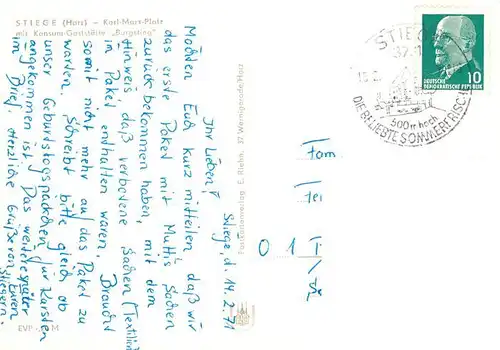 STIEGE (Harz) – Karl-Marx-Platz
mit Konsum-Gaststätte „Burgstieg"
Stiege, d. 14.2.71
Ihr Lieben!
Möchten Euch kurz mitteilen, daß wir
das erste Paket mit Muttis Sachen
zurückbekommen haben, mit dem
Hinweis, daß verbotene Sachen (Textilien)
im Paket enthalten waren. Braucht
somit nicht mehr auf das Paket zu
warten. Schreibt bitte gleich ob
unser Geburtstagspäckchen für Karsten
angekommen ist. Das weitere später
im Brief. Herzliche Grüße von Euren
Stiegern.
EVP M
Postkartenverlag E. Riehn, 37 Wernigerode/Harz
STIEGE
37
500 m hoch
DIE BELIEBTE SOMMERFRISCHE
DEUTSCHE
DEMOKRATISCHE REPUBLIK
10
Fam.
O 1